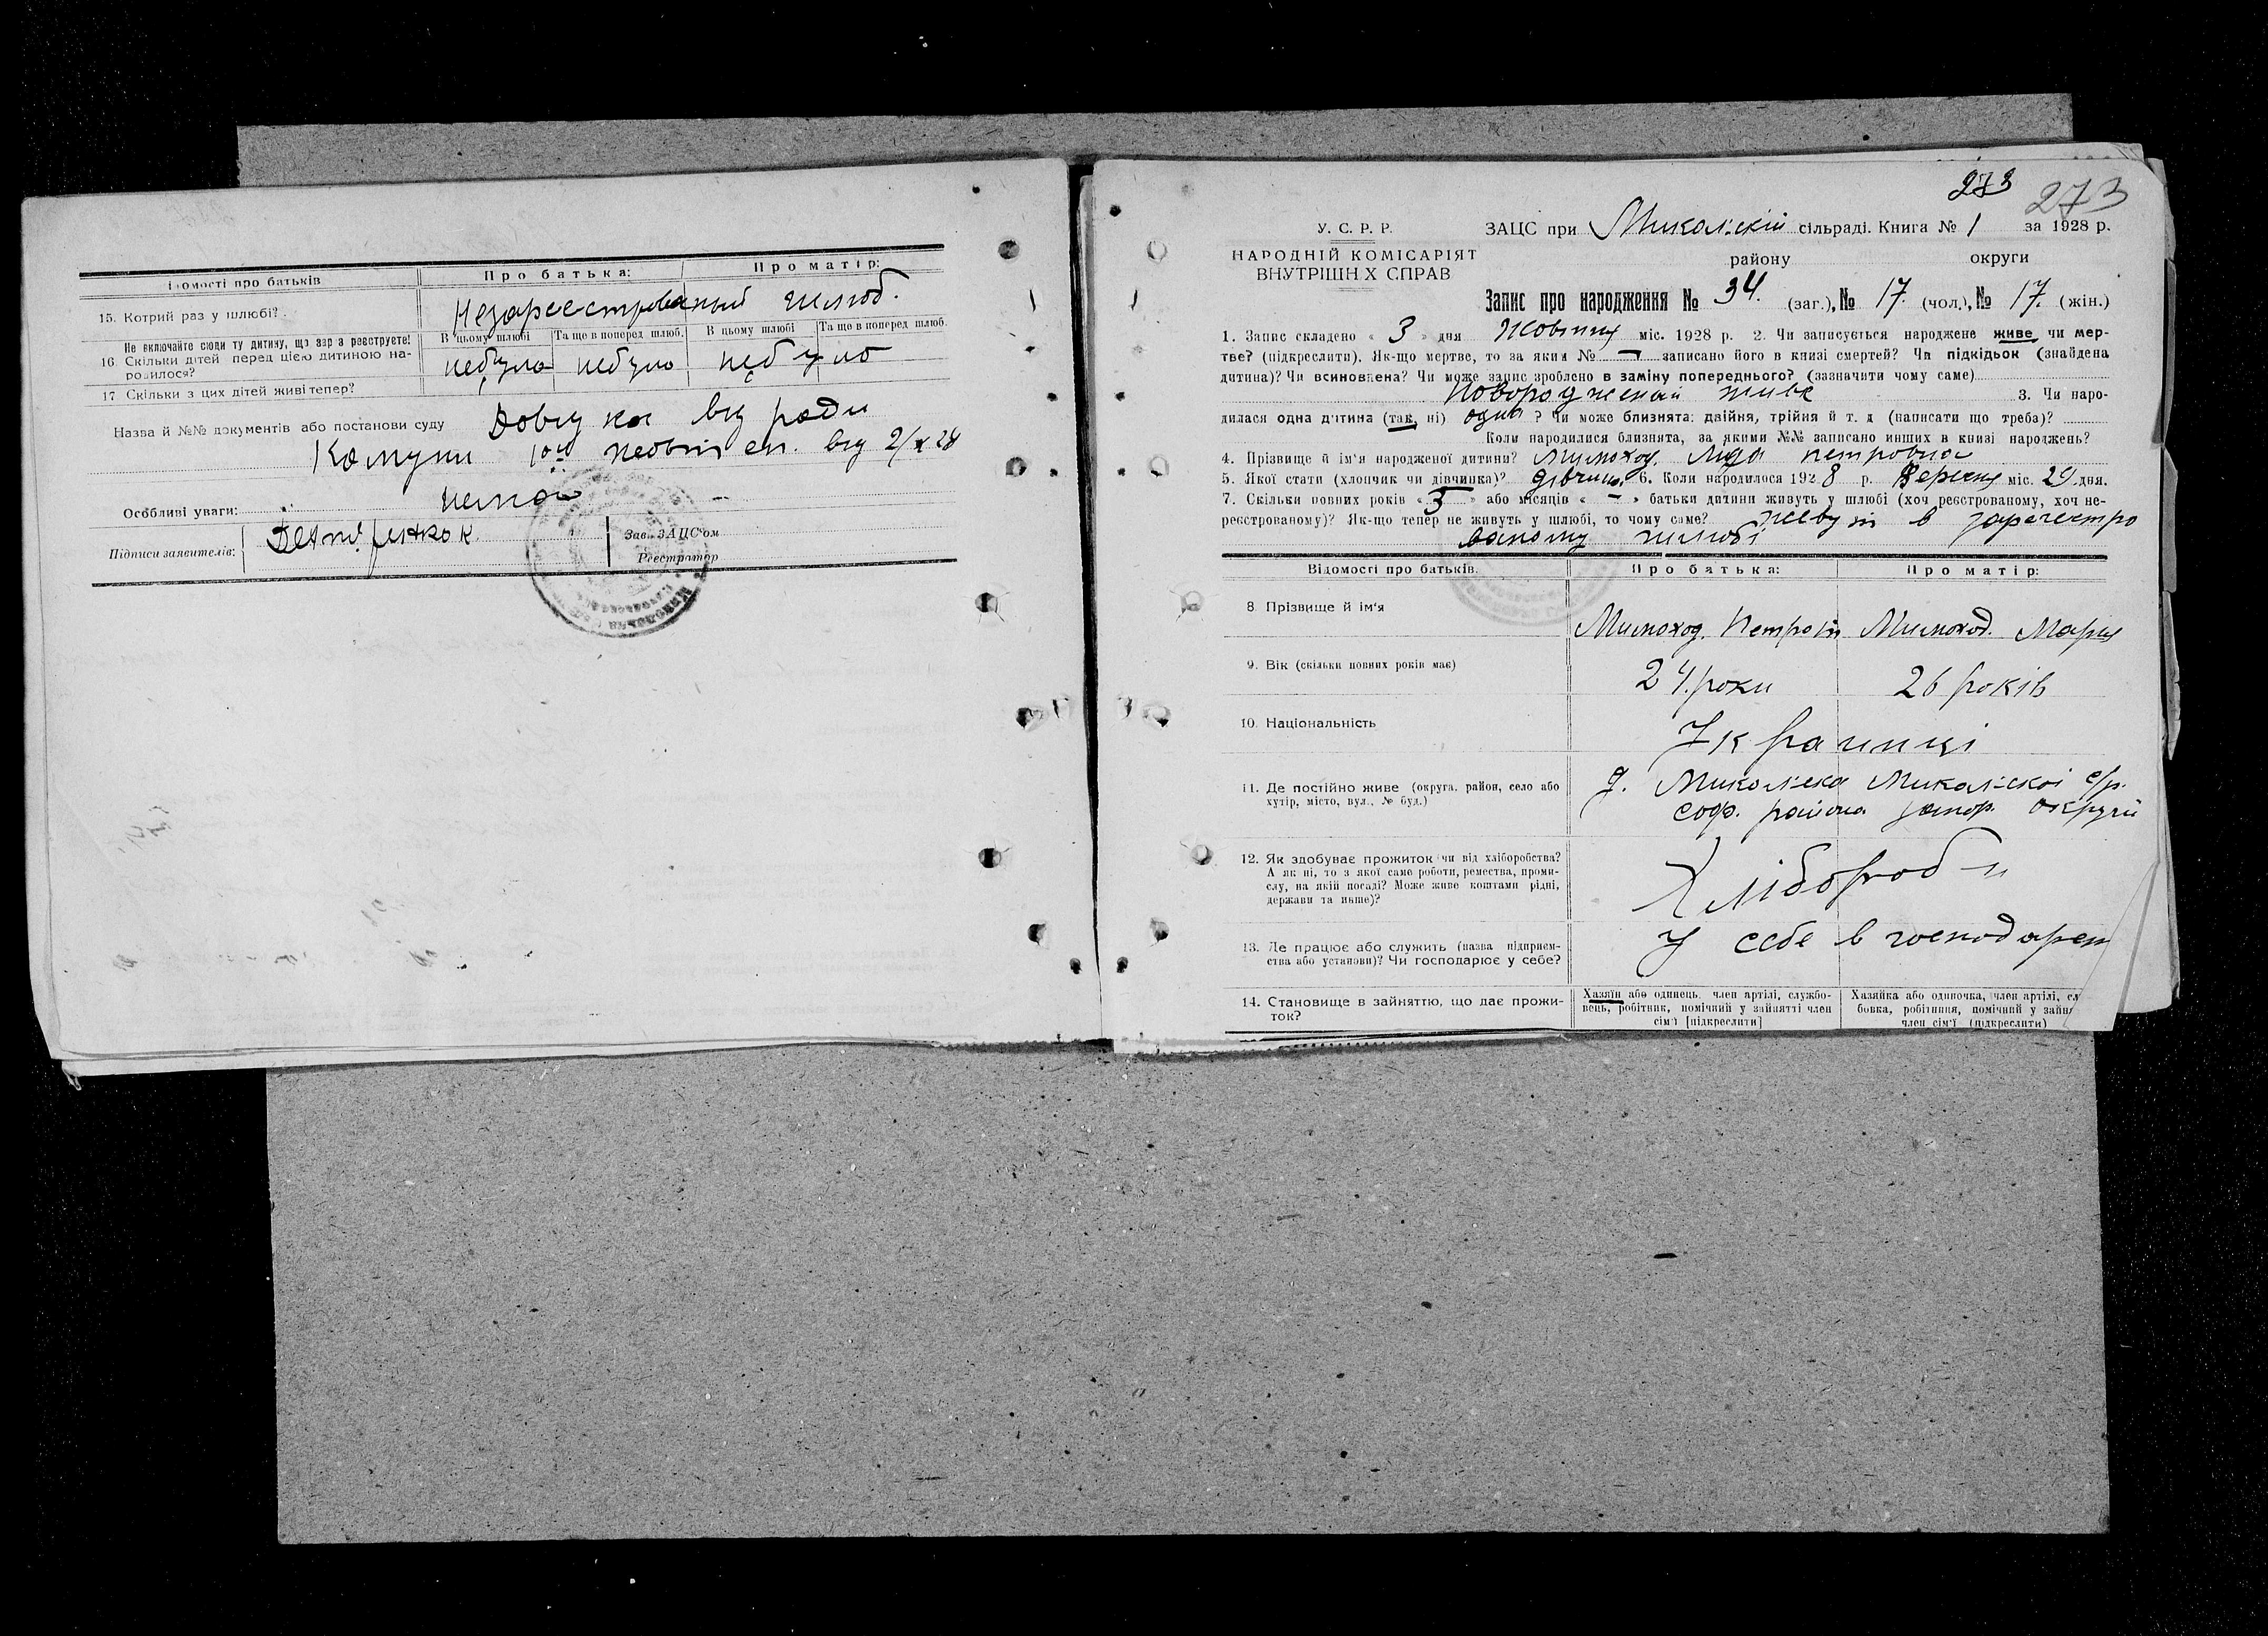 Відомості про батьків
Про батька:
Про матір:
15. Котрий раз у шлюбі?
Незареєстрований шлюб.
Не включайте сюди ту дитину, що зараз реєструєте!
В цьому шлюбі
Та ще в поперед. шлюб.
В цьому шлюбі
Та ще в поперед. шлюб.
16. Скільки дітей перед цією дитиною на-
родилося?
небуло небуло небуло
17. Скільки з цих дітей живі тепер?
Назва й №№ документів або постанови суду
Довідка від ради
Комуни від 2/X 28
Особливі уваги:
немає
Підписи заявителів:
Зав. ЗАЦС'ом
Реєстратор
273
273
У. С. Р. Р.
НАРОДНІЙ КОМІСАРІЯТ
ВНУТРІШНІХ СПРАВ
ЗАЦС при Микол-ській сільраді. Книга № 1 за 1928 р.
району округи
Запис про народження № 34. (заг.), № 17. (чол.), № 17. (жін.)
1. Запис складено « 3 » дня Жовтня міс. 1928 р. 2. Чи записується народжене живе чи мер-
тве? (підкреслити). Як-що мертве, то за яким № — записано його в книзі смертей? Чи підкідьок (знайдена
дитина)? Чи всиновлена? Чи може запис зроблено в заміну попереднього? (зазначити чому саме)
живе 3. Чи наро-
дилася одна дитина (так, ні) одна ? Чи може близнята: двійня, трійня й т. д. (написати що треба)?
Коли народилися близнята, за якими №№ записано инших в книзі народжень?
4. Прізвище й ім'я народженої дитини? Мимоход. Ліда Петровна
5. Якої стати (хлопчик чи дівчинка)? дівчина. 6. Коли народилося 1928 р. Вересня міс. 29 дня.
7. Скільки повних років « 3 » або місяців « — » батьки дитини живуть у шлюбі (хоч реєстрованому, хоч не-
реєстрованому)? Як-що тепер не живуть у шлюбі, то чому саме? живуть в зареєстро
ваному шлюбі
Відомості про батьків.
Про батька:
Про матір:
8. Прізвище й ім'я
Мимоход. Петро
Мимоход. Марія
9. Вік (скільки повних років має)
24. роки
26 років
10. Національність
Українці
11. Де постійно живе (округа, район, село або
хутір, місто, вул., № буд.)
Микол-ска Микол-скої с/р.
Соф. района Запор. округи
12. Як здобуває прожиток чи від хліборобства?
А як ні, то з якої саме роботи, ремества, проми-
слу, на якій посаді? Може живе коштами рідні,
держави та инше)?
Хлібороб-и
13. Де працює або служить (назва підприєм-
ства або установи)? Чи господарює у себе?
У себе в господарст
14. Становище в зайняттю, що дає прожи-
ток?
Хазяїн або одинець, член артілі, службо-
вець, робітник, помічний у зайнятті член
сім'ї [підкреслити]
Хазяйка або одиночка, член артілі, сл
бовка, робітниця, помічний у зайн
член сім'ї (підкреслити)